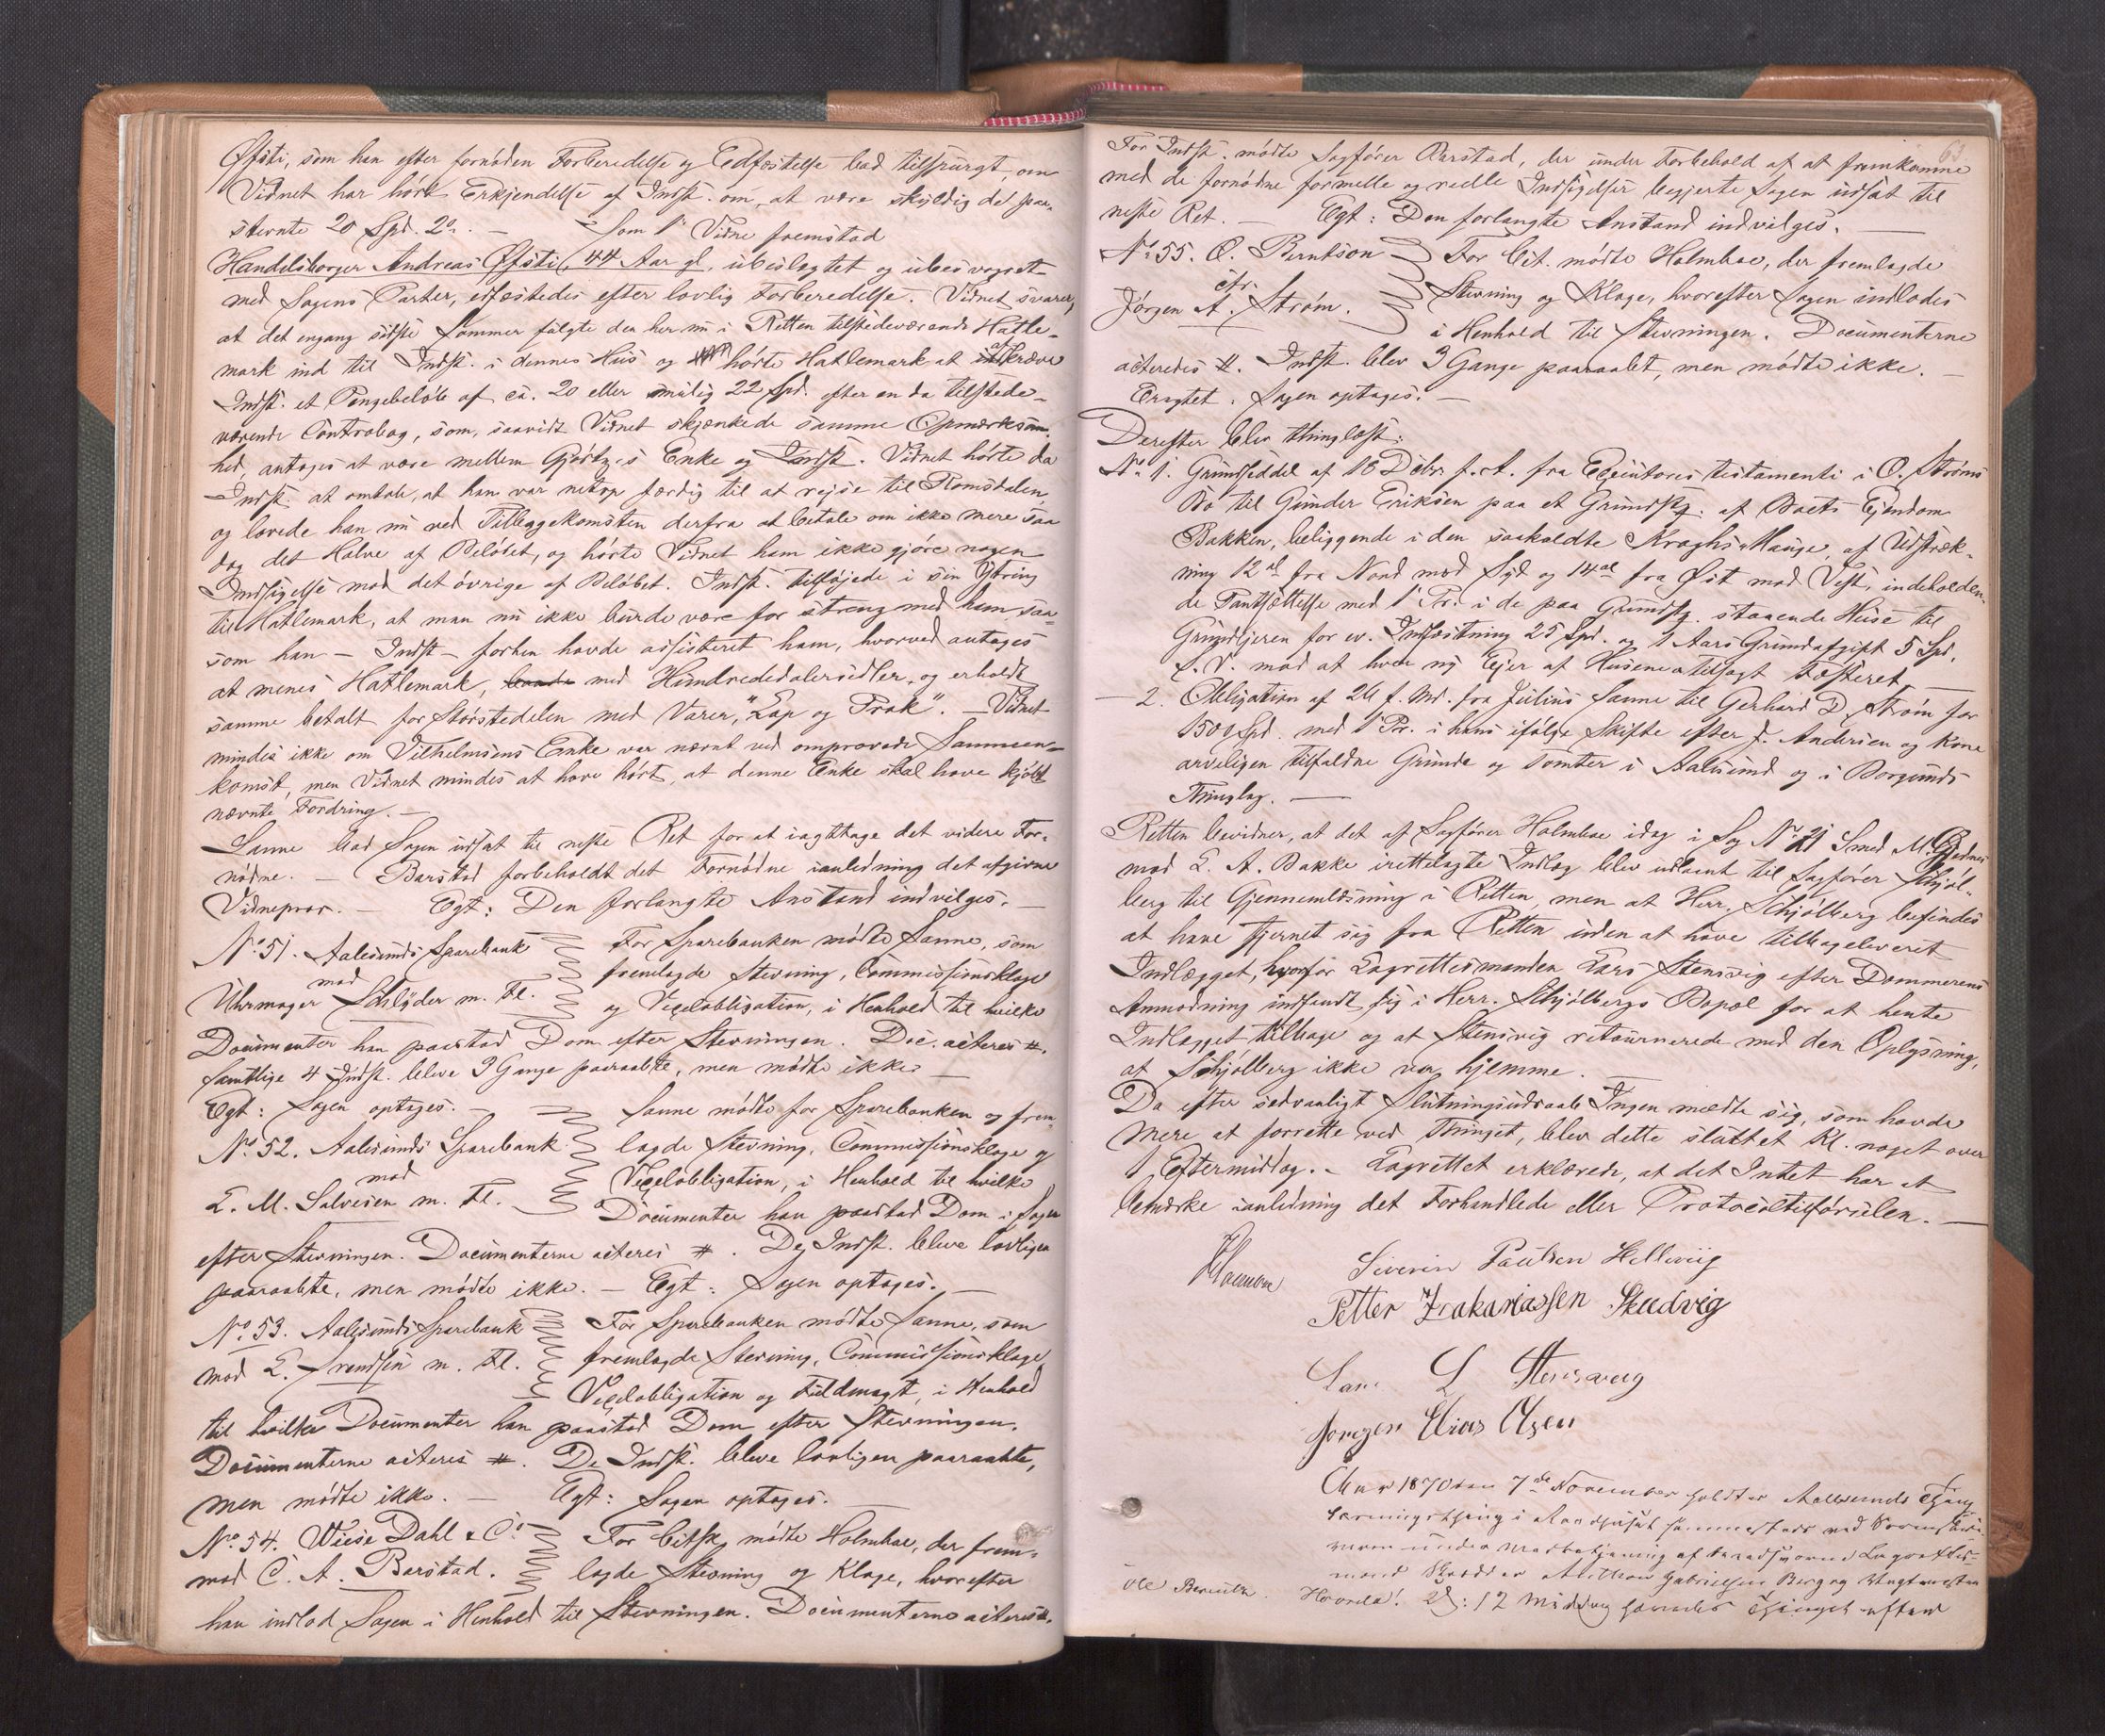 Øfsti, som han efter fornøden Forberedelse og Edfæstelse bad tilspurgt, om
Vidnet har hørt Erkjendelse af Indst. om, at være skyldig det paa-
stevnte 20 Spd. 2 – Som 1ste Vidne fremstod
Handelsborger Andreas Øfsti, 44 Aar gl., ubeslægtet og ubesvogret
med Sagens Parter, edfæstedes efter lovlig Forberedelse. Vidnet svarer,
at det engang sidste Sommer fulgte den her nu i Retten tilstedeværende Hatle-
mark ind til Indst. i dennes Hus og hørte Hatlemark at afkræve
Indst. et Pengebeløb af ca. 20 eller mulig 22 Spd. efter en da tilstede-
værende Contrabog, som, saavidt Vidnet skjænkede samme Opmærksom-
hed, antages at være mellem Gørtz's Enke og Indst. Vidnet hørte da
Indst. at omtale, at han var netop færdig til at rejse til Romsdalen,
og lovede han nu ved Tilbagekomsten derfra at betale om ikke mere saa
dog det Halve af Beløbet, og hørte Vidnet ham ikke gjøre nogen
Indsigelse mod det øvrige af Beløbet. Indst. tilføjede i sin Ytring
til Hatlemark, at man nu ikke burde være for streng med ham saa-
som han – Indst – forhen havde assisteret ham, hvorved antages
at menes Hatlemark, baade med Hundrededalersedler, og erholdt
samme betalt for Størstedelen med Varer, "Lap og Prak". – Vidnet
mindes ikke om Vilhelmsens Enke var nævnt ved omprovede Sammen-
komst, men Vidnet mindes at have hørt, at denne Enke skal have kjøbt
nævnte Fordring. –
Sanne bad Sagen udsat til neste Ret for at iagttage det videre For-
nødne. – Barstad forbeholdt det Fornødne i anledning det afgivne
Vidneprov. – Egt: Den forlangte Anstand indvilges. –
No 51. Aalesunds Sparebank For Sparebanken mødte Sanne, som
mod fremlagde Stevning, Commissionsklage
Uhrmager Schlyder m. Fl. og Vexelobligation, i Henhold til hvilke
Documenter han paastod Dom efter Stevningen. Doc. acteres #.
Samtlige 4 Indst. bleve 3 Gange paaraabte, men mødte ikke –
Egt: Sagen optages. – Sanne mødte for Sparebanken og frem-
No 52. Aalesunds Sparebank lagde Stevning, Commissionsklage og
mod Vexelobligation, i Henhold til hvilke
L. M. Salvesen m. Fl. Documenter han paastod Dom i Sagen
efter Stevningen. Documenterne acteres #. De Indst. bleve lovligen
paaraabte, men mødte ikke. – Egt: Sagen optages. –
No 53. Aalesunds Sparebank For Sparebanken mødte Sanne, som
mod L. Svendsen m. Fl. fremlagde Stevning, Commissionsklage,
Vexelobligation og Fuldmagt, i Henhold
til hvilke Documenter han paastod Dom efter Stevningen.
Documenterne acteres #. De Indst. bleve lovligen paaraabte,
men mødte ikke. – Egt: Sagen optages. –
No 54. Wiese Dahl & Co For Citst. mødte Holmboe, der frem-
mod C. A. Barstad. lagde Stevning og Klage, hvorefter
han indlod Sagen i Henhold til Stevningen. Documenterne acteres #.
63
For Indst. mødte Sagfører Barstad, der under Forbehold af at fremkomme
med de fornødne formelle og reelle Indsigelser begjerte Sagen udsat til
neste Ret. – Egt: Den forlangte Anstand indvilges. –
No 55. O. Berntson For Cit. mødte Holmboe, der fremlagde
ctr. Stevning og Klage, hvorefter Sagen indlodes
Jørgen A. Strøm. i Henhold til Stevningen. Documenterne
acteredes #. Indst. blev 3 Gange paaraabt, men mødte ikke. –
Eragtet: Sagen optages. –
Derefter blev thinglæst:
No 1. Grundseddel af 18 Debr. f. A. fra Executores testamenti i O. Strøms
Bo til Gunder Eriksen paa et Grundstk. af Boets Ejendom
Bakken, beliggende i den saakaldte Kraghs-Hauge, af Udstræk-
ning 12 al fra Nord mod Syd og 14 al fra Øst mod Vest, indeholden-
de Pantsættelse med 1 Pr. i de paa Grundstk. staaende Huse til
Grundejeren for ev. Indfæstning 25 Spd. og 1 Aars Grundafgift 5 Spd.,
x. V. mod at hver ny Ejer af Husene er tilsagt Fæsteret –
– 2. Obligation af 24 f. Md. fra Julius Sanne til Gerhard D. Strøm for
1500 Spd. med 1 Pr. i hans ifølge Skifte efter J. Andersen og Kone
arveligen tilfaldne Grunde og Tomter i Aalesund og i Borgunds
Thinglag. –
Retten bevidner, at det af Sagfører Holmboe idag i Sag No 21 Smed M. Gjødnes
mod L. A. Bakke irettelagte Indlæg blev udlaant til Sagfører Schjøl-
berg til Gjennemlæsning i Retten, men at Herr. Schjølberg befindes
at have fjernet sig fra Retten uden at have tilbageleveret
Indlægget, hvorfor Lagrettesmanden Lars Stensvig efter Dommerens
Anmodning indfandt sig i Herr. Schjølbergs Bopæl for at hente
Indlægget tilbage og at Stensvig retournerede med den Oplysning,
at Schjølberg ikke var hjemme. –
Da efter sedvanligt Slutningsudraab Ingen meldte sig, som havde
mere at forrette ved Thinget, blev dette sluttet Kl. noget over
1 Eftermiddag. – Lagrettet erklærede, at det Intet har at
bemærke i anledning det Forhandlede eller Protocoltilførselen. –
Severin Paulsen Hellevig
Petter Zakariassen Skudvig
Lars L Stensvig
Jørgen Elias Olsen
Anno 1870 den 7de November holdtes Aalesunds Thing
i Raadhuset sammesteds ved Sorenskri-
veren under Medbetjening af Lagrettes-
mænd Gabrielsen Berg og
Ole Hovold. Kl: 12 Middag Thinget efter